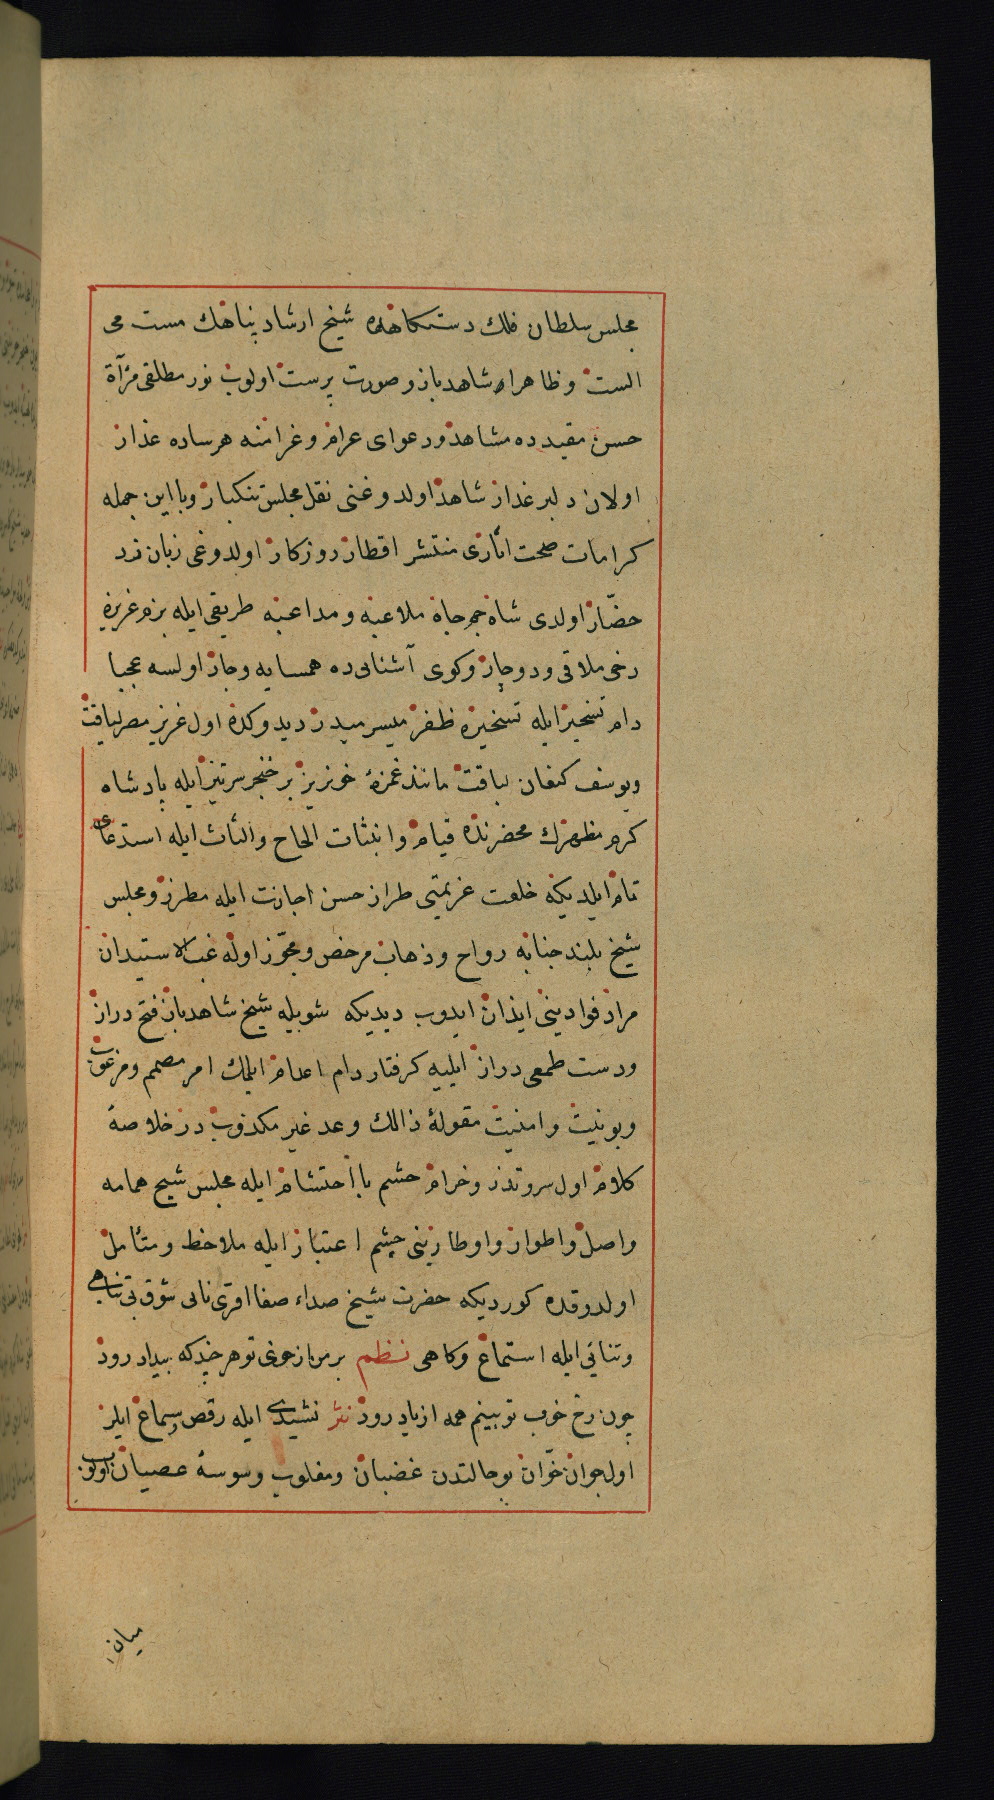 مجلس سلطان فلك دستكاهده شيخ ارشاد پناهك مست مى
الست وظاهرا شاهد باز و صورت پرست اولوب نور مطلقى مرآة
حسن مقيدده مشاهد ودعواى عرام وغرامنه هر ساده عذار
اولان دلبر غدار شاهد اولدوغنى نقل مجلس تنكبار وبا اين جمله
كرامات صحت اثارى منتشر اقطار روزكار اولدوغى زبان زد
حضار اولدى شاه جم جاه ملاعبه ومداعبه طريقى ايله بزم عزيزه
دخى ملاقى ودوچار وكوى آشنايى ده همسايه وجار اولسه عجبا
دام تسخير ايله تسخيره ظفر ميسر ميدر ديدوكده اول عزيز مصر لياقت
ويوسف كنعان لباقت مانند غمزۀ خونريز بر خنجر سرتيز ايله پادشاه
كرم مظهرك محضرنده قيام وانبثات الحاح والثاث ايله استدعاى
تام ايلديكه خلعت عزيمتى طراز حسن اجازت ايله مطرز ومجلس
شيخ بلند جنابه رواح وذهاب مرخص ومجوز اوله غب الاستيدان
مراد فوادينى ايذان ايدوب ديديكه شويله شيخ شاهد باز فتح دراز
ودست طمعى دراز ايليه كرفتار دام اعدام ايلمك امر مصمم ومرغوب
وبو نيت وامنيت مقولۀ ذالك وعد غير مكذوب در خلاصۀ
كلام اول سرو تذرو خرام حشم با احتشام ايله مجلس شيخ همامه
واصل واطوار واوطارينى چشم اعتبار ايله ملاحظ ومتأمل
اولدوقده كورديكه حضرت شيخ صداء صفا افزى نايى شوق بى تناهى
وتنائي ايله استماع وكاهى نظم بر من از خوى تو هر چند كه بيداد رود
چون رخ خوب تو بينم همه از ياد رود نثر نشيدى ايله رقص وسماع ايلر
اول جوان خوان بو حالتدن غضبان ومغلوب وسوسۀ عصيان اولوب
ميان